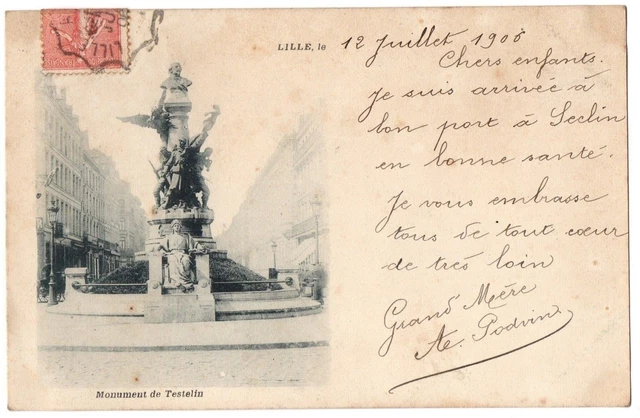 LILLE, le 12 Juillet 1908
Chers enfants.
Je suis arrivée à
bon port à Seclin
en bonne santé.
Je vous embrasse
tous de tout cœur
de très loin
Grand'Mère
Podvin
Monument de Testelin